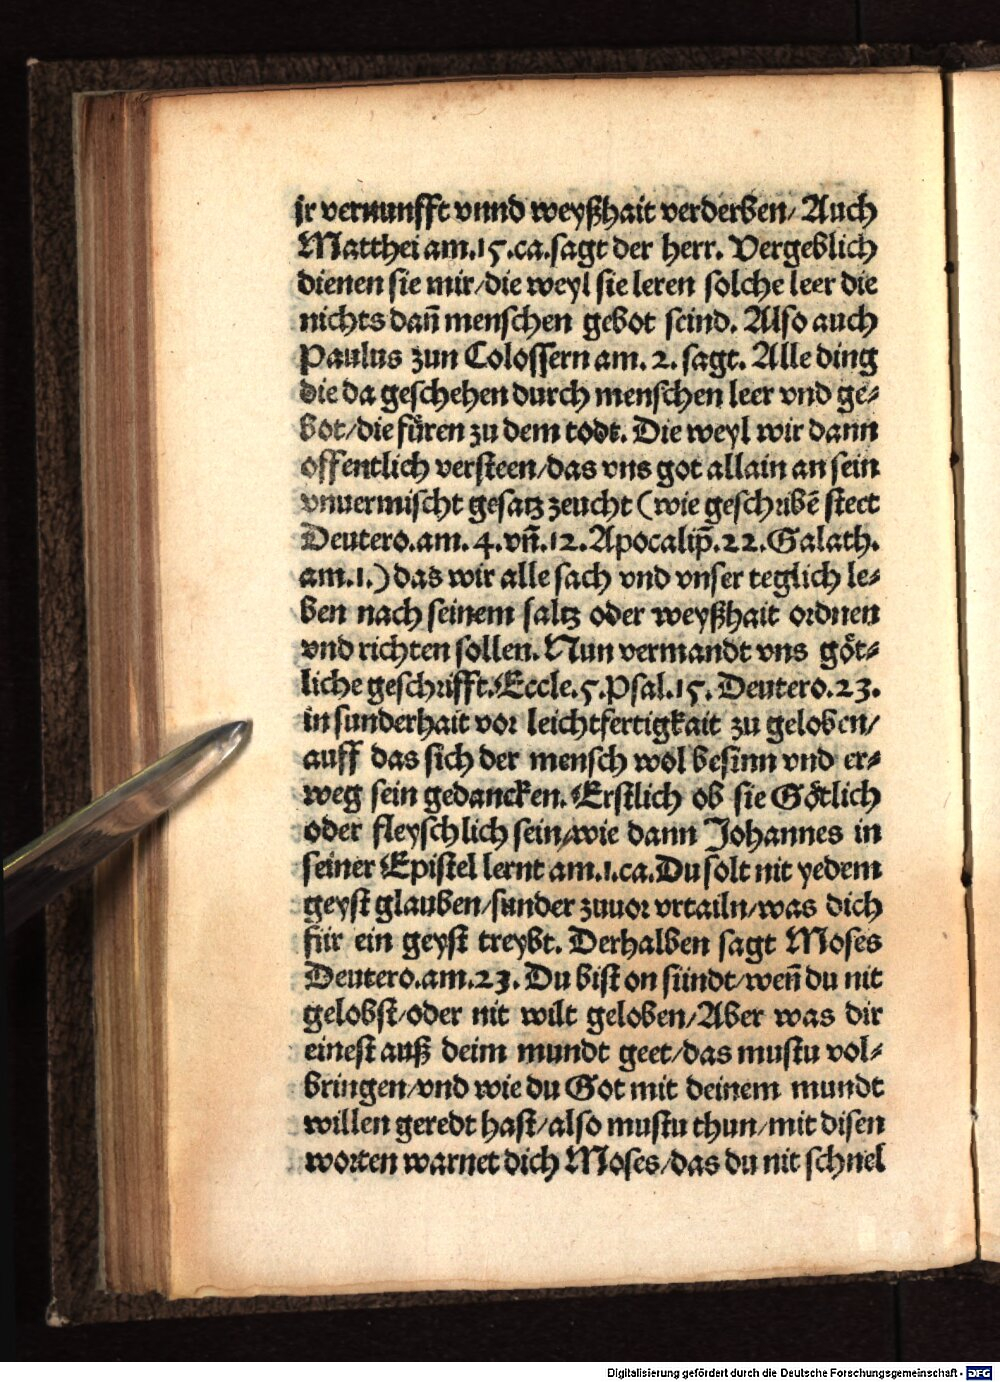 jr vernunfft vnnd weyßhait verderben/ Auch
Matthei am.15.ca.sagt der herr. Vergeblich
dienen sie mir/die weyl sie leren solche leer die
nichts dañ menschen gebot seind. Also auch
Paulus zun Colossern am. 2. sagt. Alle ding
die da geschehen durch menschen leer vnd ge⸗
bot/die fuͤren zu dem todt. Die weyl wir dann
offentlich versteen/das vns got allain an sein
vnuermischt gesatz zeucht (wie geschribē steet
Deutero.am. 4. vñ.12. Apocalip̄.22.Galath.
am.1.) das wir alle sach vnd vnser teglich le⸗
ben nach seinem saltz oder weyßhait ordnen
vnd richten sollen. Nun vermandt vns goͤt⸗
liche geschrifft.Eccle.5.Psal.15. Deutero.23.
in sunderhait vor leichtfertigkait zu geloben/
auff das sich der mensch wol besinn vnd er⸗
weg sein gedancken. Erstlich ob sie Goͤtlich
oder fleyschlich sein/wie dann Johannes in
seiner Epistel lernt am.1.ca.Du solt nit yedem
geyst glauben/sunder zuuor vrtailn/was dich
für ein geyst treybt. Derhalben sagt Moses
Deutero.am.23. Du bist on sündt/weñ du nit
gelobst/oder nit wilt geloben/Aber was dir
einest auß deim mundt geet/das mustu vol⸗
bringen/vnd wie du Got mit deinem mundt
willen geredt hast/also mustu thun/mit disen
worten warnet dich Moses/das du nit schnel
Digitalisierung gefördert durch die Deutsche Forschungsgemeinschaft - DFG